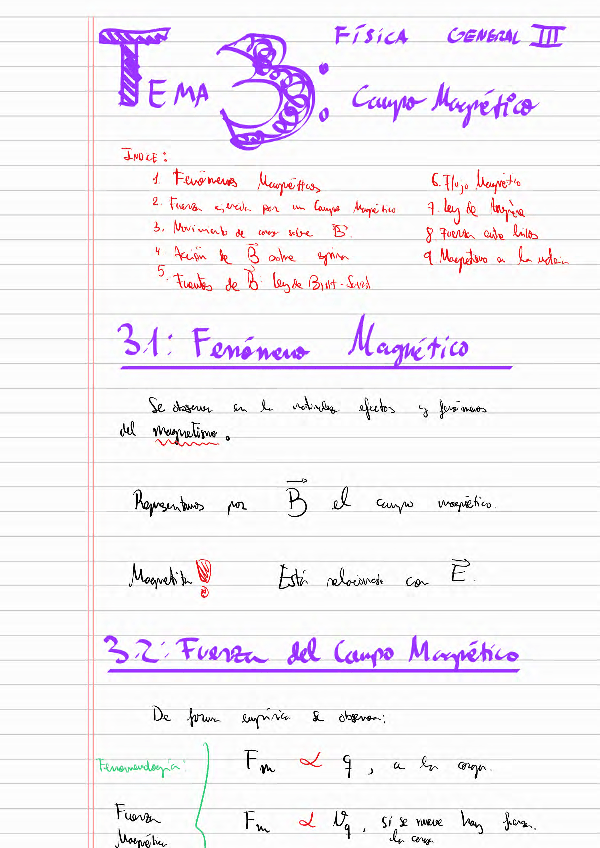 FÍSICA GENERAL III
TEMA 3:
Campo Magnético
ÍNDICE:
1. Fenómenos Magnéticos
2. Fuerza ejercida por un Campo Magnético
3. Movimiento de carga sobre B⃗
4. Acción de B⃗ sobre espira
5. Fuentes de B⃗. Ley de Biot-Savart
6. Flujo Magnético
7. Ley de Ampère
8. Fuerza entre hilos
9. Magnetismo en la materia
3.1: Fenómeno Magnético
Se observan en la naturaleza efectos y fenómenos
del magnetismo.
Representamos por B⃗ el campo magnético.
Magnetita! Está relacionado con E⃗.
3.2: Fuerza del Campo Magnético
De forma empírica se observan:
Fenomenología:
Fm α q, a la carga.
Fuerza
Magnética
Fm α Vq, si se mueve hay fuerza.
la carga